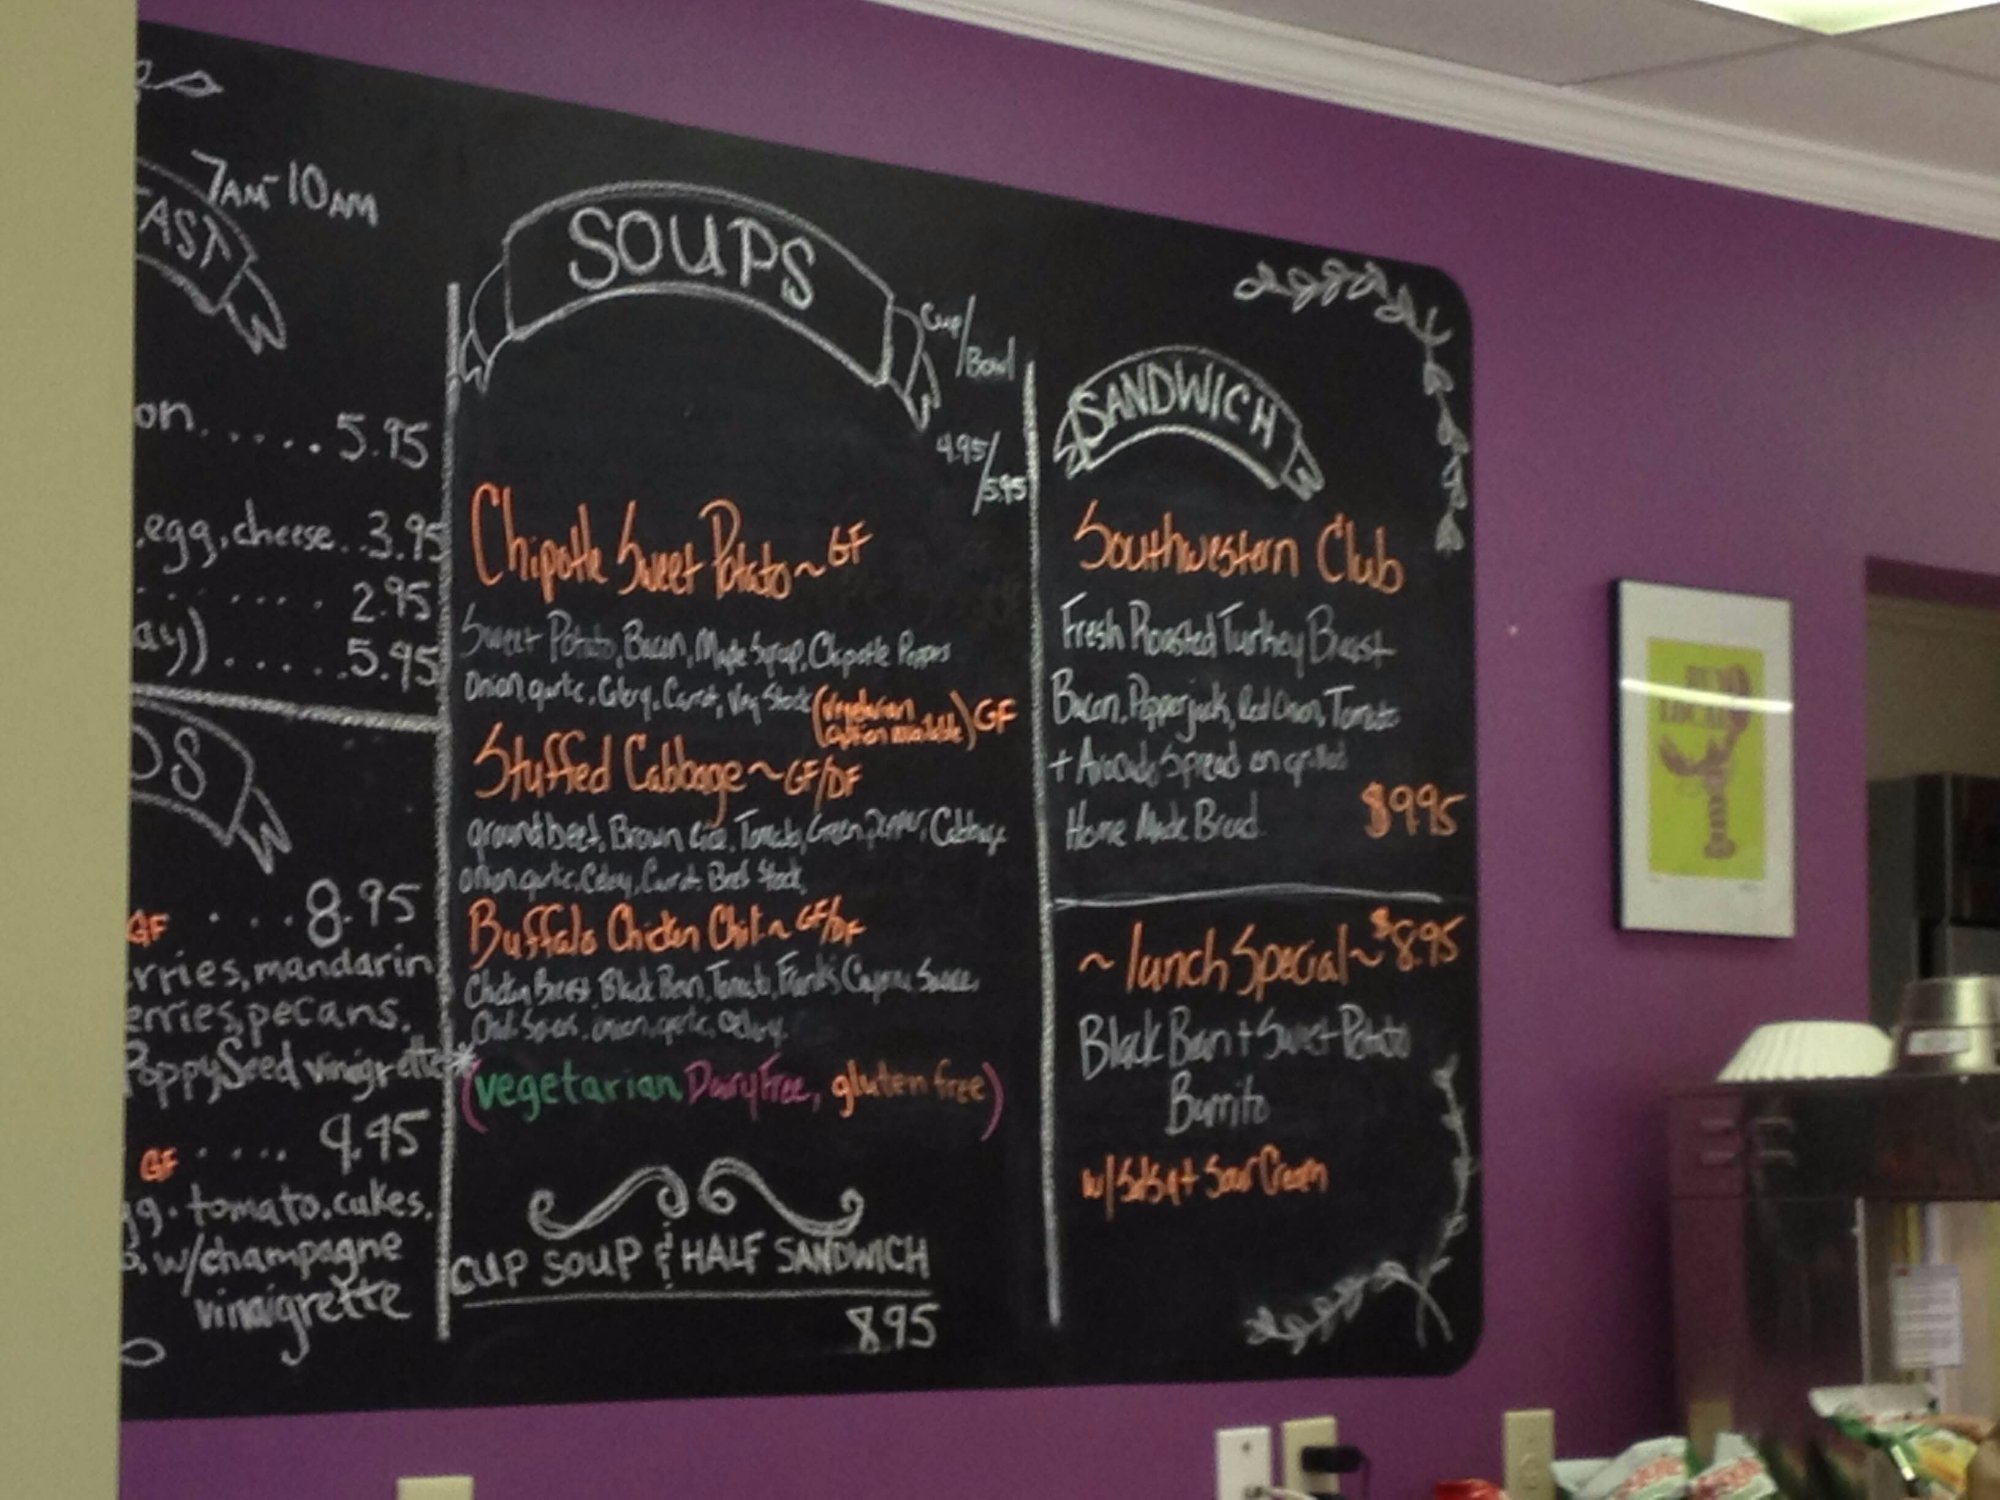 7AM-10AM
FAST
on.....5.95
egg, cheese..3.95
........2.95
ay)).....5.95
DS
GF ....8.95
rries, mandarin
erries, pecans.
Poppy Seed vinigrette
GF ....9.95
gg. tomato. cukes.
w/champagne
vinaigrette
SOUPS
Cup/
Bowl
4.95/
5.95
Chipotle Sweet Potato ~ GF
Sweet Potato, Bacon, Maple Syrup, Chipotle Peppers
Onion, garlic, Celery, Carrot, Veg Stock (Vegetarian
option available) GF
Stuffed Cabbage ~ GF/DF
ground beef, Brown rice, Tomato, Green Pepper, Cabbage
onion, garlic, Celery, Carrot, Beef Stock,
Buffalo Chicken Chili ~ GF/DF
Chicken Breast, Black Bean, Tomato, Frank's Cayenne Sauce,
onion, garlic, Celery.
(vegetarian Dairy Free, gluten free)
CUP SOUP & HALF SANDWICH
8.95
SANDWICH
Southwestern Club
Fresh Roasted Turkey Breast
Bacon, Pepperjack, Red Onion, Tomato
+ Avocado Spread on grilled
Home Made Bread
$9.95
~ lunch Special ~ $8.95
Black Bean + Sweet Potato
Burrito
w/ Salsa + Sour Cream